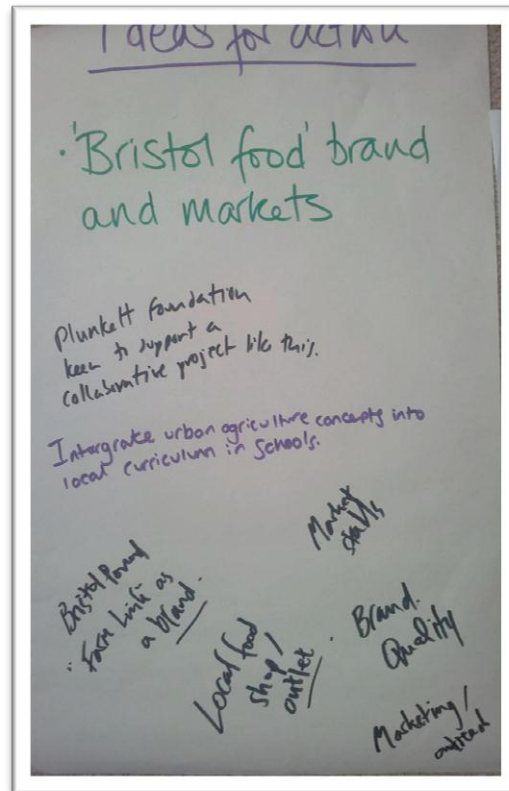 Ideas for action
• 'Bristol food' brand
and markets
Plunkett Foundation
keen to support a
collaborative project like this.
Intergrate urban agriculture concepts into
local curriculum in Schools.
Market
stalls
Bristol Pound
"Farm Link" as
a brand.
Local food
shop/
outlet.
Brand.
Quality
Marketing/